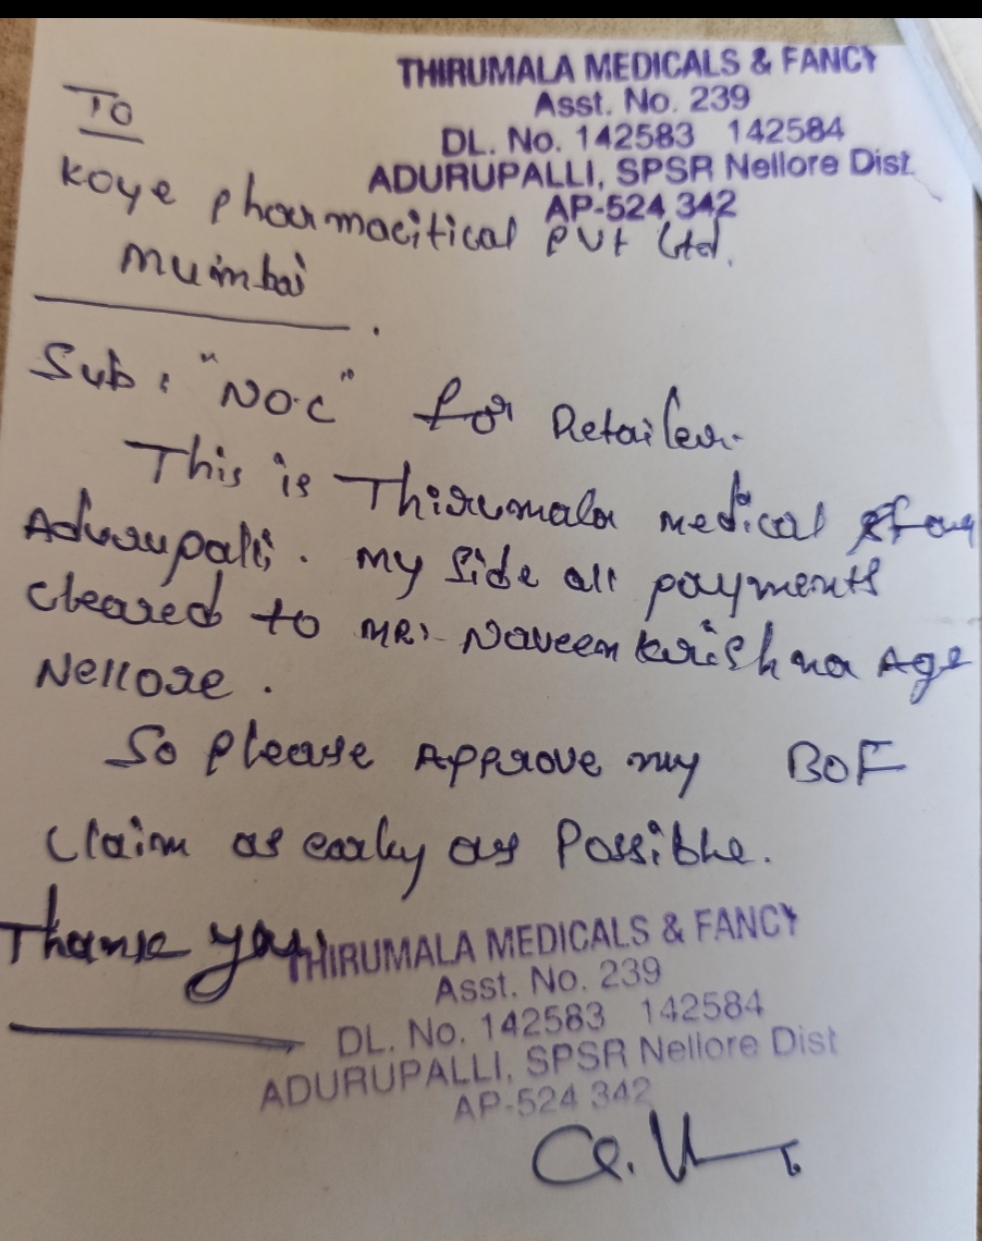 THIRUMALA MEDICALS & FANCY
Asst. No. 239
DL. No. 142583 142584
ADURUPALLI, SPSR Nellore Dist.
AP-524 342
TO
Koye pharmacitical PVt Ltd.
Mumbai
Sub: "NOC" for Retailer.
This is Thirumala medical
Adurupalli. My side all payments
cleared to MR. Naveen Krishna Age
Nellore.
So please Approve my BOF
claim as early as Possible.
Thank you
THIRUMALA MEDICALS & FANCY
Asst. No. 239
DL. No. 142583 142584
ADURUPALLI, SPSR Nellore Dist
AP-524 342